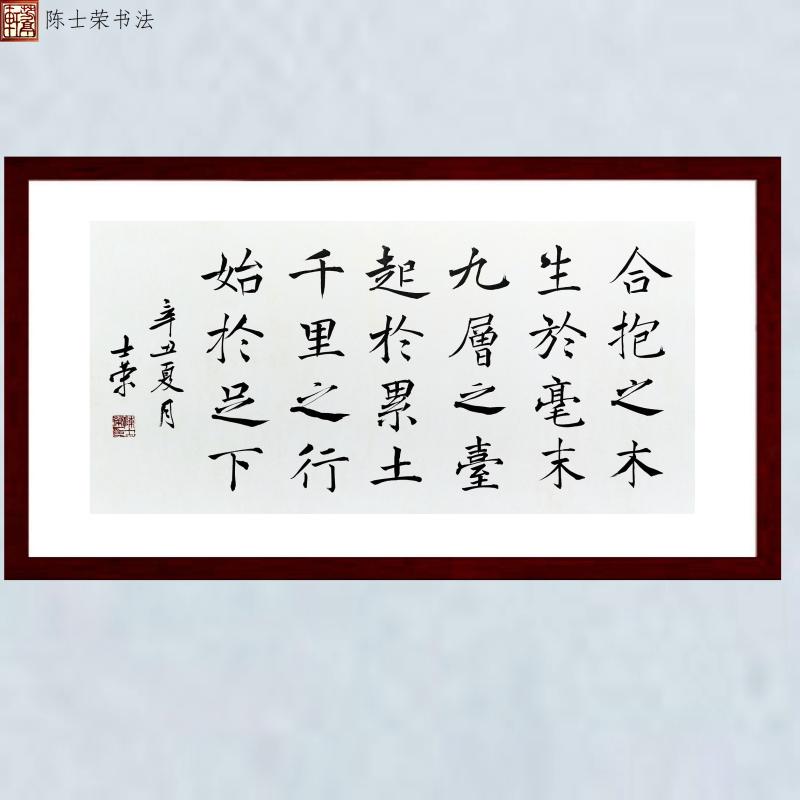 陈士荣书法
合抱之木
生於毫末
九層之臺
起於累土
千里之行
始於足下
辛丑夏月
士荣